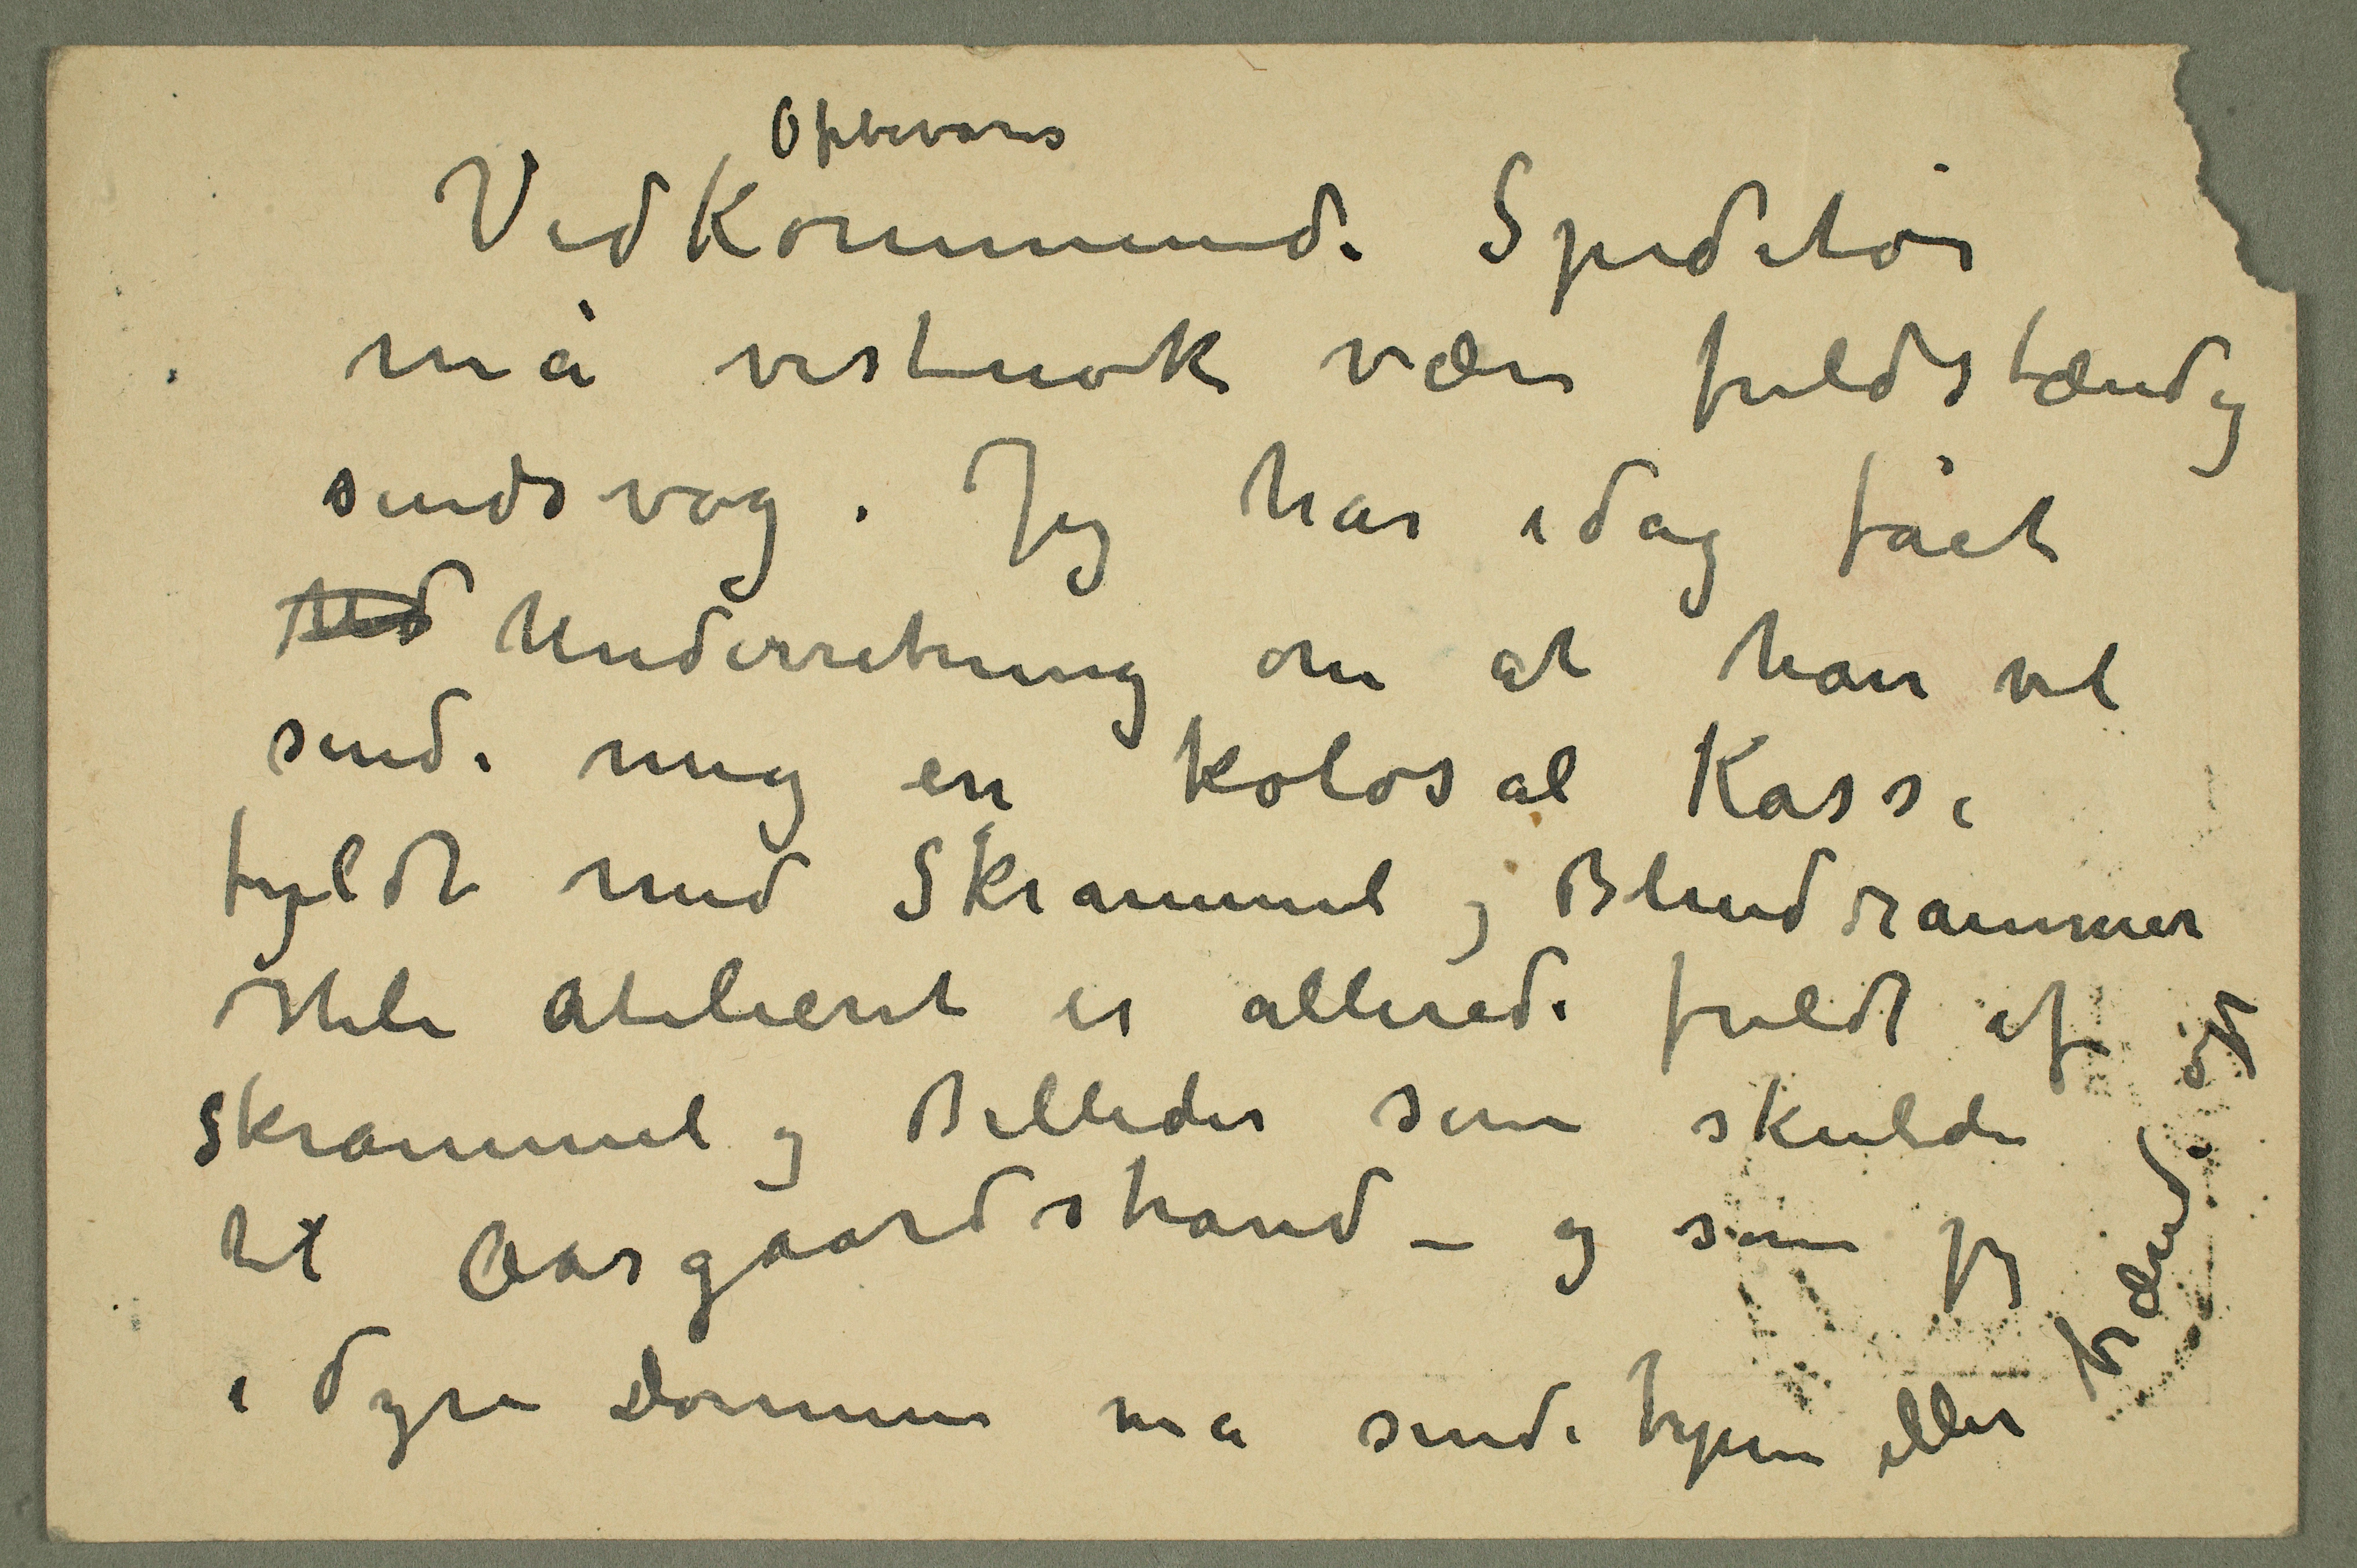 Opbevares
Vedkommende Speditør
må vistnok være fuldstændig
sindsvag. Jeg har idag fåt
Und Underretning om at han vil
sende mig en kolosal Kasse
fyldt med Skrammel og Blendrammer
Hele atelieret er allerede fuldt af
Skrammel og Billeder som skulde
til Aasgaardstrand – og som jeg
i dyre Domme må sende hjem eller
brænde op